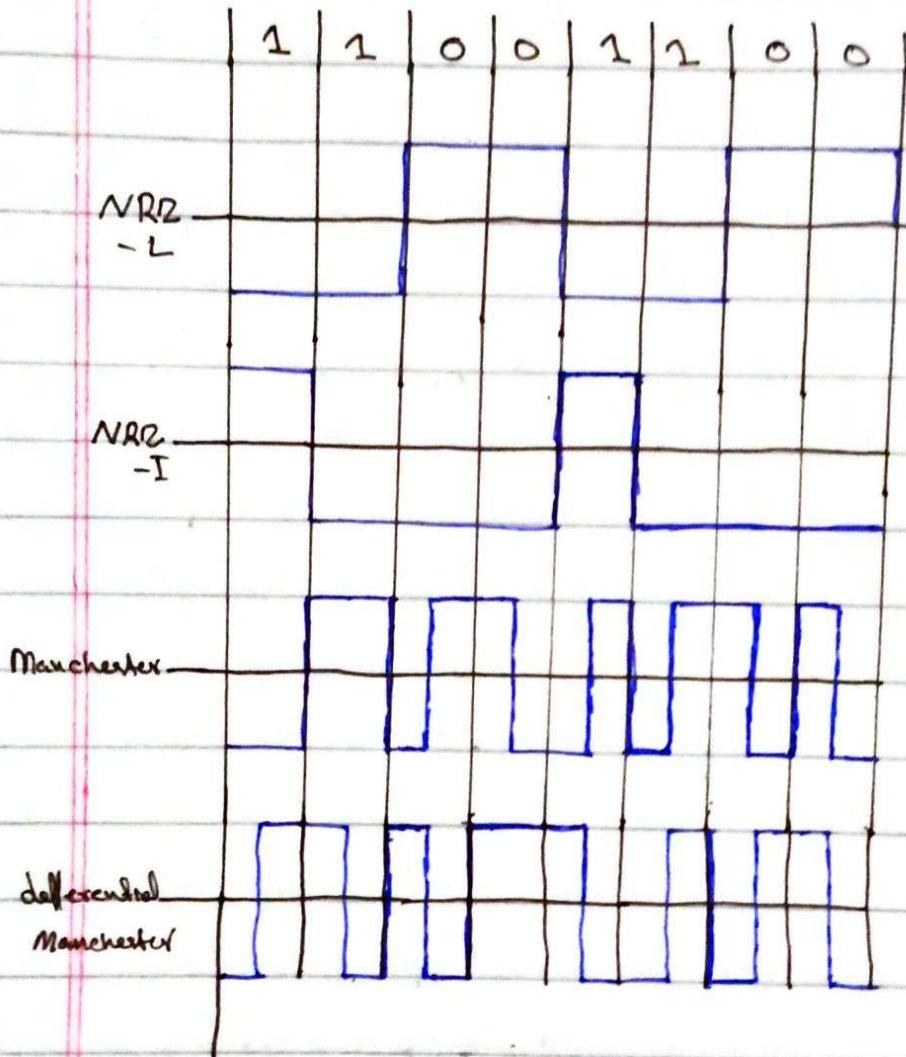 1 1 0 0 1 1 0 0
NRZ
-L
NRZ
-I
Manchester
defferential
Manchester